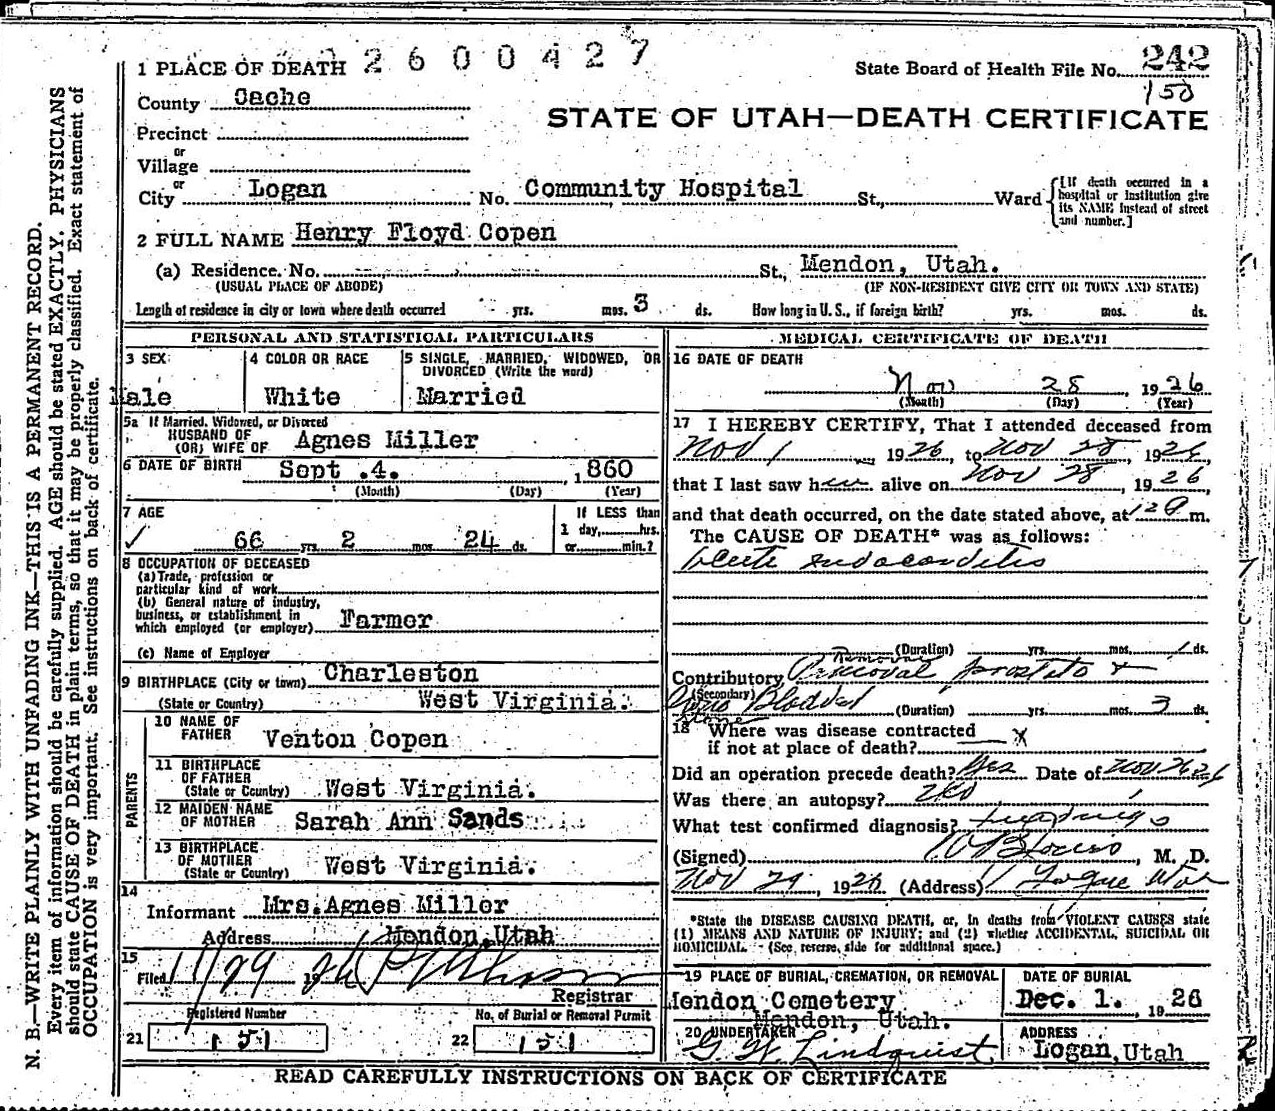 N. B.—WRITE PLAINLY WITH UNFADING INK—THIS IS A PERMANENT RECORD.
Every item of information should be carefully supplied. AGE should be stated EXACTLY. PHYSICIANS
should state CAUSE OF DEATH in plain terms, so that it may be properly classified. Exact statement of
OCCUPATION is very important. See instructions on back of certificate.
2600427
1 PLACE OF DEATH
State Board of Health File No. 242
150
County Cache
STATE OF UTAH—DEATH CERTIFICATE
Precinct
or
Village
or
City Logan No. Community Hospital St., Ward
[If death occurred in a
hospital or institution give
its NAME instead of street
and number.]
2 FULL NAME Henry Floyd Copen
(a) Residence. No. St., Mendon, Utah.
(USUAL PLACE OF ABODE) (IF NON-RESIDENT GIVE CITY OR TOWN AND STATE)
Length of residence in city or town where death occurred yrs. mos. 3 ds. How long in U. S., if foreign birth? yrs. mos. ds.
PERSONAL AND STATISTICAL PARTICULARS
3 SEX
Male
4 COLOR OR RACE
White
5 SINGLE, MARRIED, WIDOWED, OR
DIVORCED (Write the word)
Married
5a If Married, Widowed, or Divorced
HUSBAND OF
(OR) WIFE OF Agnes Miller
6 DATE OF BIRTH Sept .4. , 1860
(Month) (Day) (Year)
7 AGE
✓ 66 yrs. 2 mos. 24 ds.
If LESS than
1 day, hrs.
or min.?
8 OCCUPATION OF DECEASED
(a) Trade, profession or
particular kind of work
(b) General nature of industry,
business, or establishment in
which employed (or employer) Farmer
(c) Name of Employer
9 BIRTHPLACE (City or town) Charleston
(State or Country) West Virginia.
PARENTS
10 NAME OF
FATHER Venton Copen
11 BIRTHPLACE
OF FATHER
(State or Country) West Virginia.
12 MAIDEN NAME
OF MOTHER Sarah Ann Sands
13 BIRTHPLACE
OF MOTHER
(State or Country) West Virginia.
14
Informant Mrs.Agnes Miller
Address Mendon,Utah
15
Filed 11/29 19 26
Registrar
Registered Number
21 151
No. of Burial or Removal Permit
22 151
MEDICAL CERTIFICATE OF DEATH
16 DATE OF DEATH
Nov 28 , 1926
(Month) (Day) (Year)
17 I HEREBY CERTIFY, That I attended deceased from
Nov 1 , 1926, to Nov 28 , 1926,
that I last saw h alive on Nov 28 , 1926,
and that death occurred, on the date stated above, at m.
The CAUSE OF DEATH* was as follows:
Acute endocarditis
(Duration) yrs. mos. 1 ds.
Removal
Contributory Removal prostate +
(Secondary) Bladder
Stone
(Duration) yrs. mos. 3 ds.
18 Where was disease contracted
if not at place of death? x
Did an operation precede death? Yes Date of Nov 26 26
Was there an autopsy? no
What test confirmed diagnosis?
(Signed) , M. D.
Nov 29 , 1926 (Address) Logan
*State the DISEASE CAUSING DEATH, or, in deaths from VIOLENT CAUSES state
(1) MEANS AND NATURE OF INJURY; and (2) whether ACCIDENTAL, SUICIDAL OR
HOMICIDAL. (See reverse side for additional space.)
19 PLACE OF BURIAL, CREMATION, OR REMOVAL
Mendon Cemetery
Mendon, Utah.
DATE OF BURIAL
Dec. 1. 1926
20 UNDERTAKER
G. W. Lindquist
ADDRESS
Logan,Utah
READ CAREFULLY INSTRUCTIONS ON BACK OF CERTIFICATE